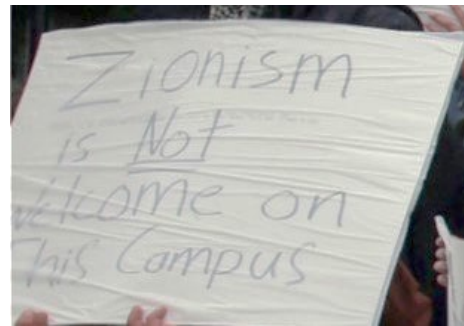 Zionism
is Not
Welcome on
This Campus